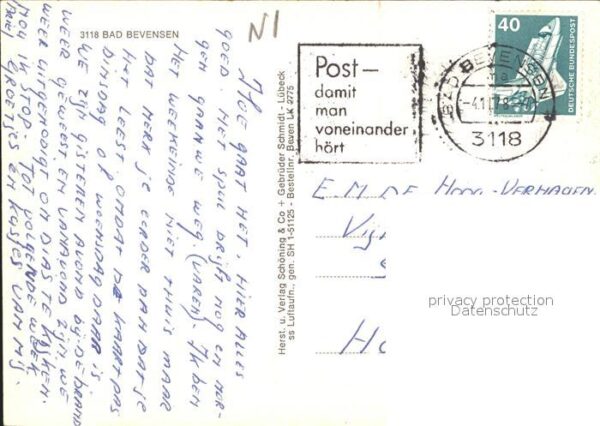 3118 BAD BEVENSEN
N1
HOE GAAT HET. HIER ALLES
GOED. HET SPUL DRIJFT NOG EN MOR-
GEN GAAN WE WEG. (VAREN). IK BEN
HET WEEKEINDE NIET THUIS MAAR
DAT MERK JE EERDER DAN DAT JE
HET LEEST. OMDAT DE KAART PAS
DINSDAG OF WOENSDAG DAAR IS.
WE ZIJN GISTEREN AVOND BIJ DE BRAND
WEER GEWEEST EN VANAVOND ZIJN WE
WEER UITGENODIGT OM DIAS TE KIJKEN.
NOU IK STOP TOT VOLGENDE WEEK
GROETJES EN KUSJES VAN MIJ.
Herst. u. Verlag Schöning & Co + Gebrüder Schmidt - Lübeck
ss Luftaufn., gen. SH 1-51125 - Bestellnr. Beven LK 2775
Post –
damit
man
voneinander
hört
BAD BEVENSEN
3118
40
DEUTSCHE BUNDESPOST
E.M. DE HOOG-VERHAGEN
privacy protection
Datenschutz